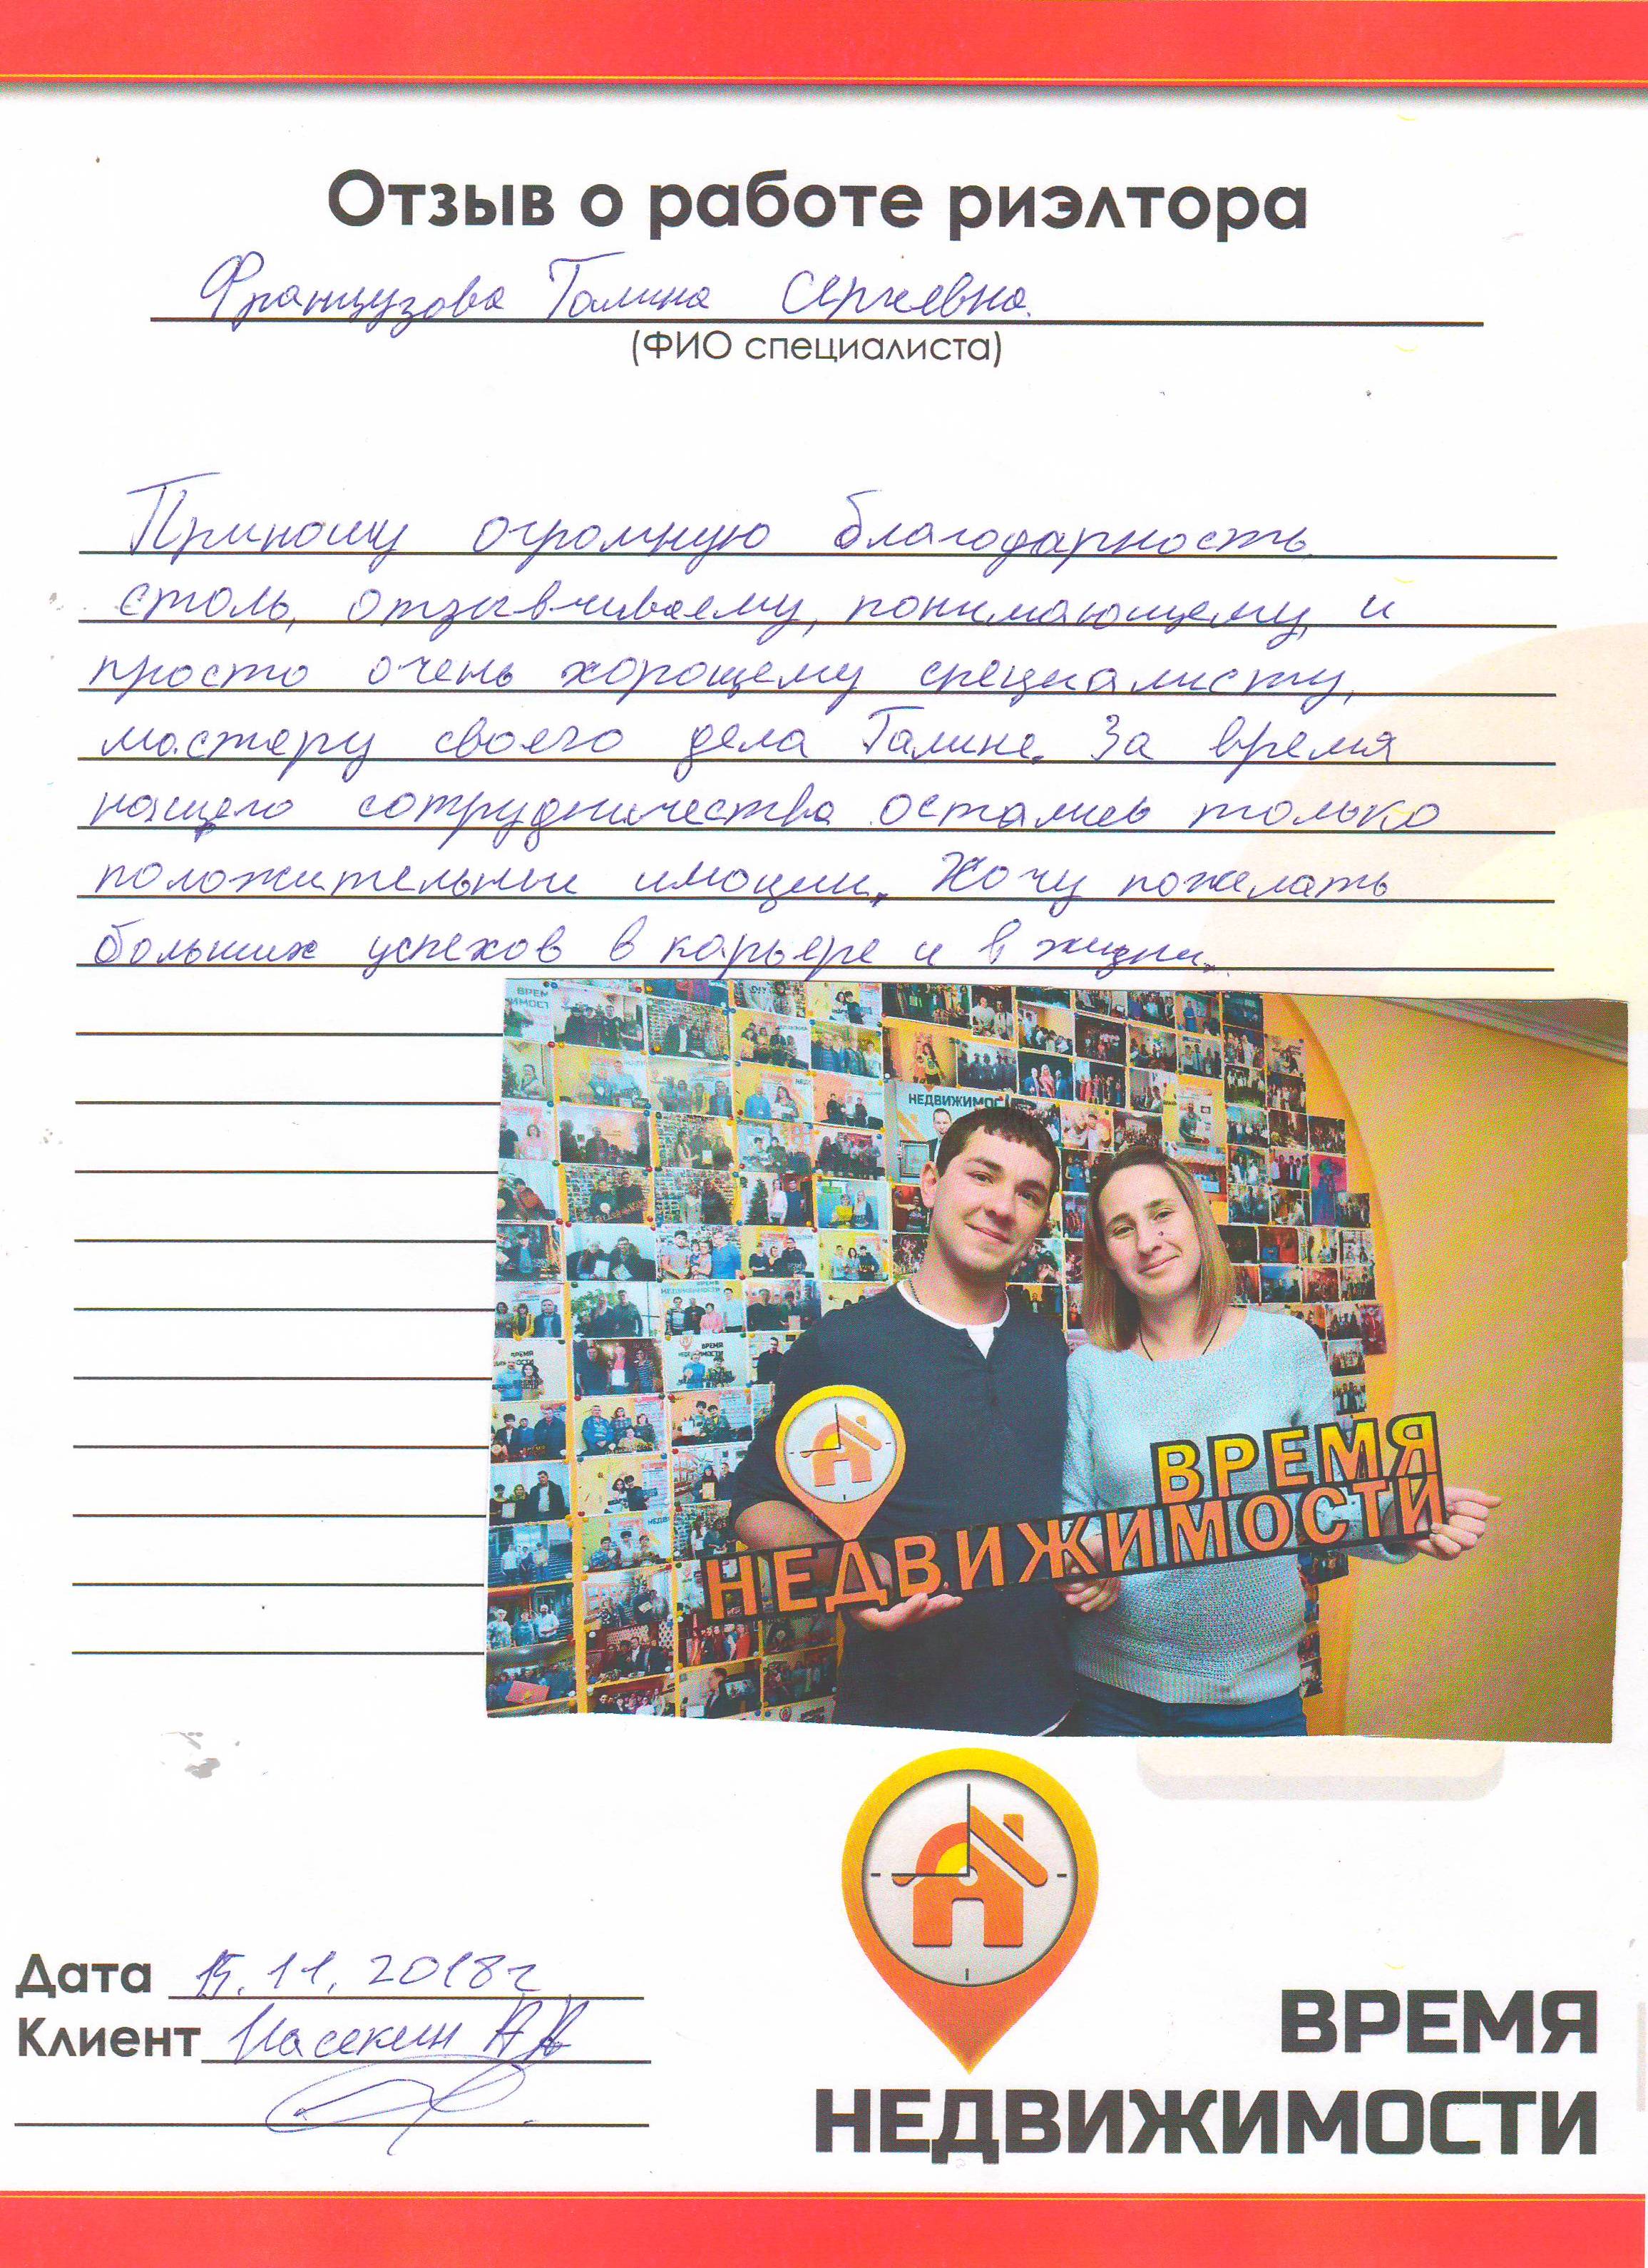 Отзыв о работе риэлтора
Французова Галина Сергеевна.
(ФИО специалиста)
Приношу огромную благодарность
столь, отзывчивому, понимающему, и
просто очень хорошему специалисту,
мастеру своего дела Галине. За время
нашего сотрудничества остались только
положительные имоции. Хочу пожелать
больших успехов в карьере и в жизни.
НЕДВИЖИМОС
ВРЕМЯ
НЕДВИЖИМОСТИ
Дата 15.11.2018г
Клиент Масекин А.А
ВРЕМЯ
НЕДВИЖИМОСТИ